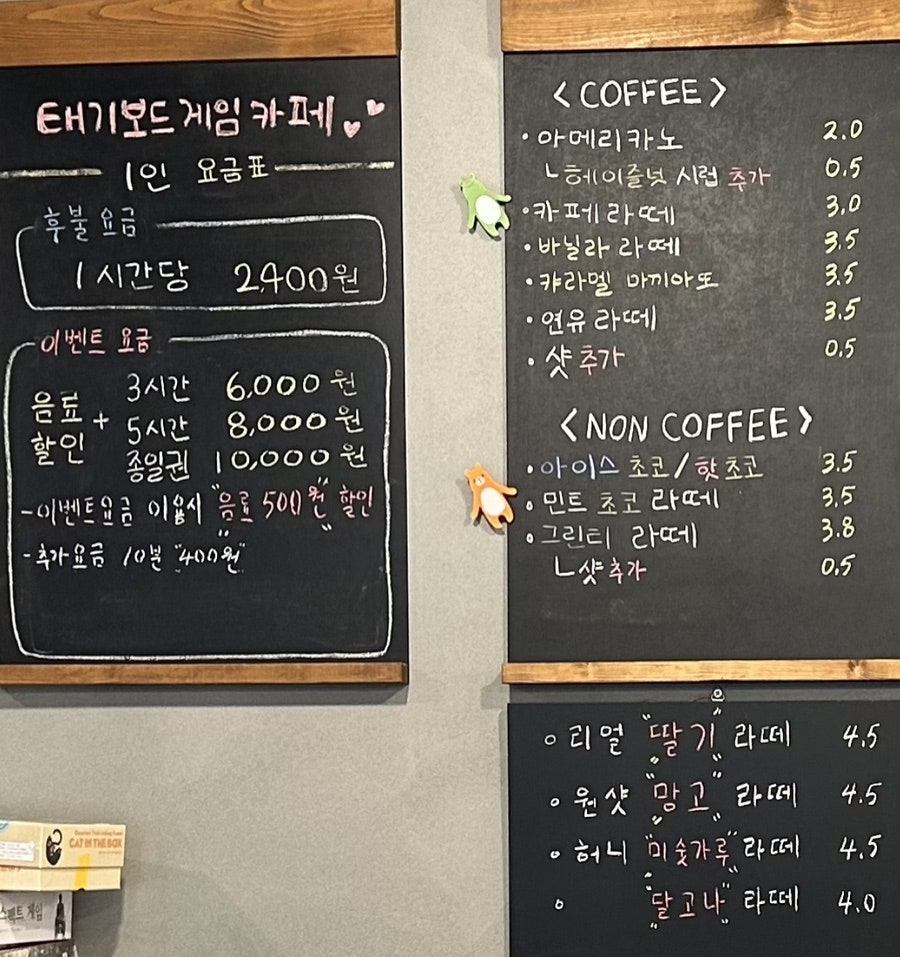 태기보드게임카페
1인 요금표
후불 요금
1시간당 2,400원
이벤트 요금
음료 할인 + 3시간 6,000원
5시간 8,000원
종일권 10,000원
-이벤트요금 이용시 "음료 500원" 할인
-추가요금 10분 "400원"
<COFFEE>
·아메리카노 2.0
ㄴ헤이즐넛 시럽 추가 0.5
·카페라떼 3.0
·바닐라 라떼 3.5
·캬라멜 마끼아또 3.5
·연유라떼 3.5
·샷추가 0.5
<NON COFFEE>
·아이스초코/핫초코 3.5
·민트초코라떼 3.5
·그린티 라떼 3.8
ㄴ샷추가 0.5
·리얼 "딸기" 라떼 4.5
·원샷 "망고" 라떼 4.5
·허니 "미숫가루" 라떼 4.5
· "달고나" 라떼 4.0
CAT IN THE BOX
스펙트 게임